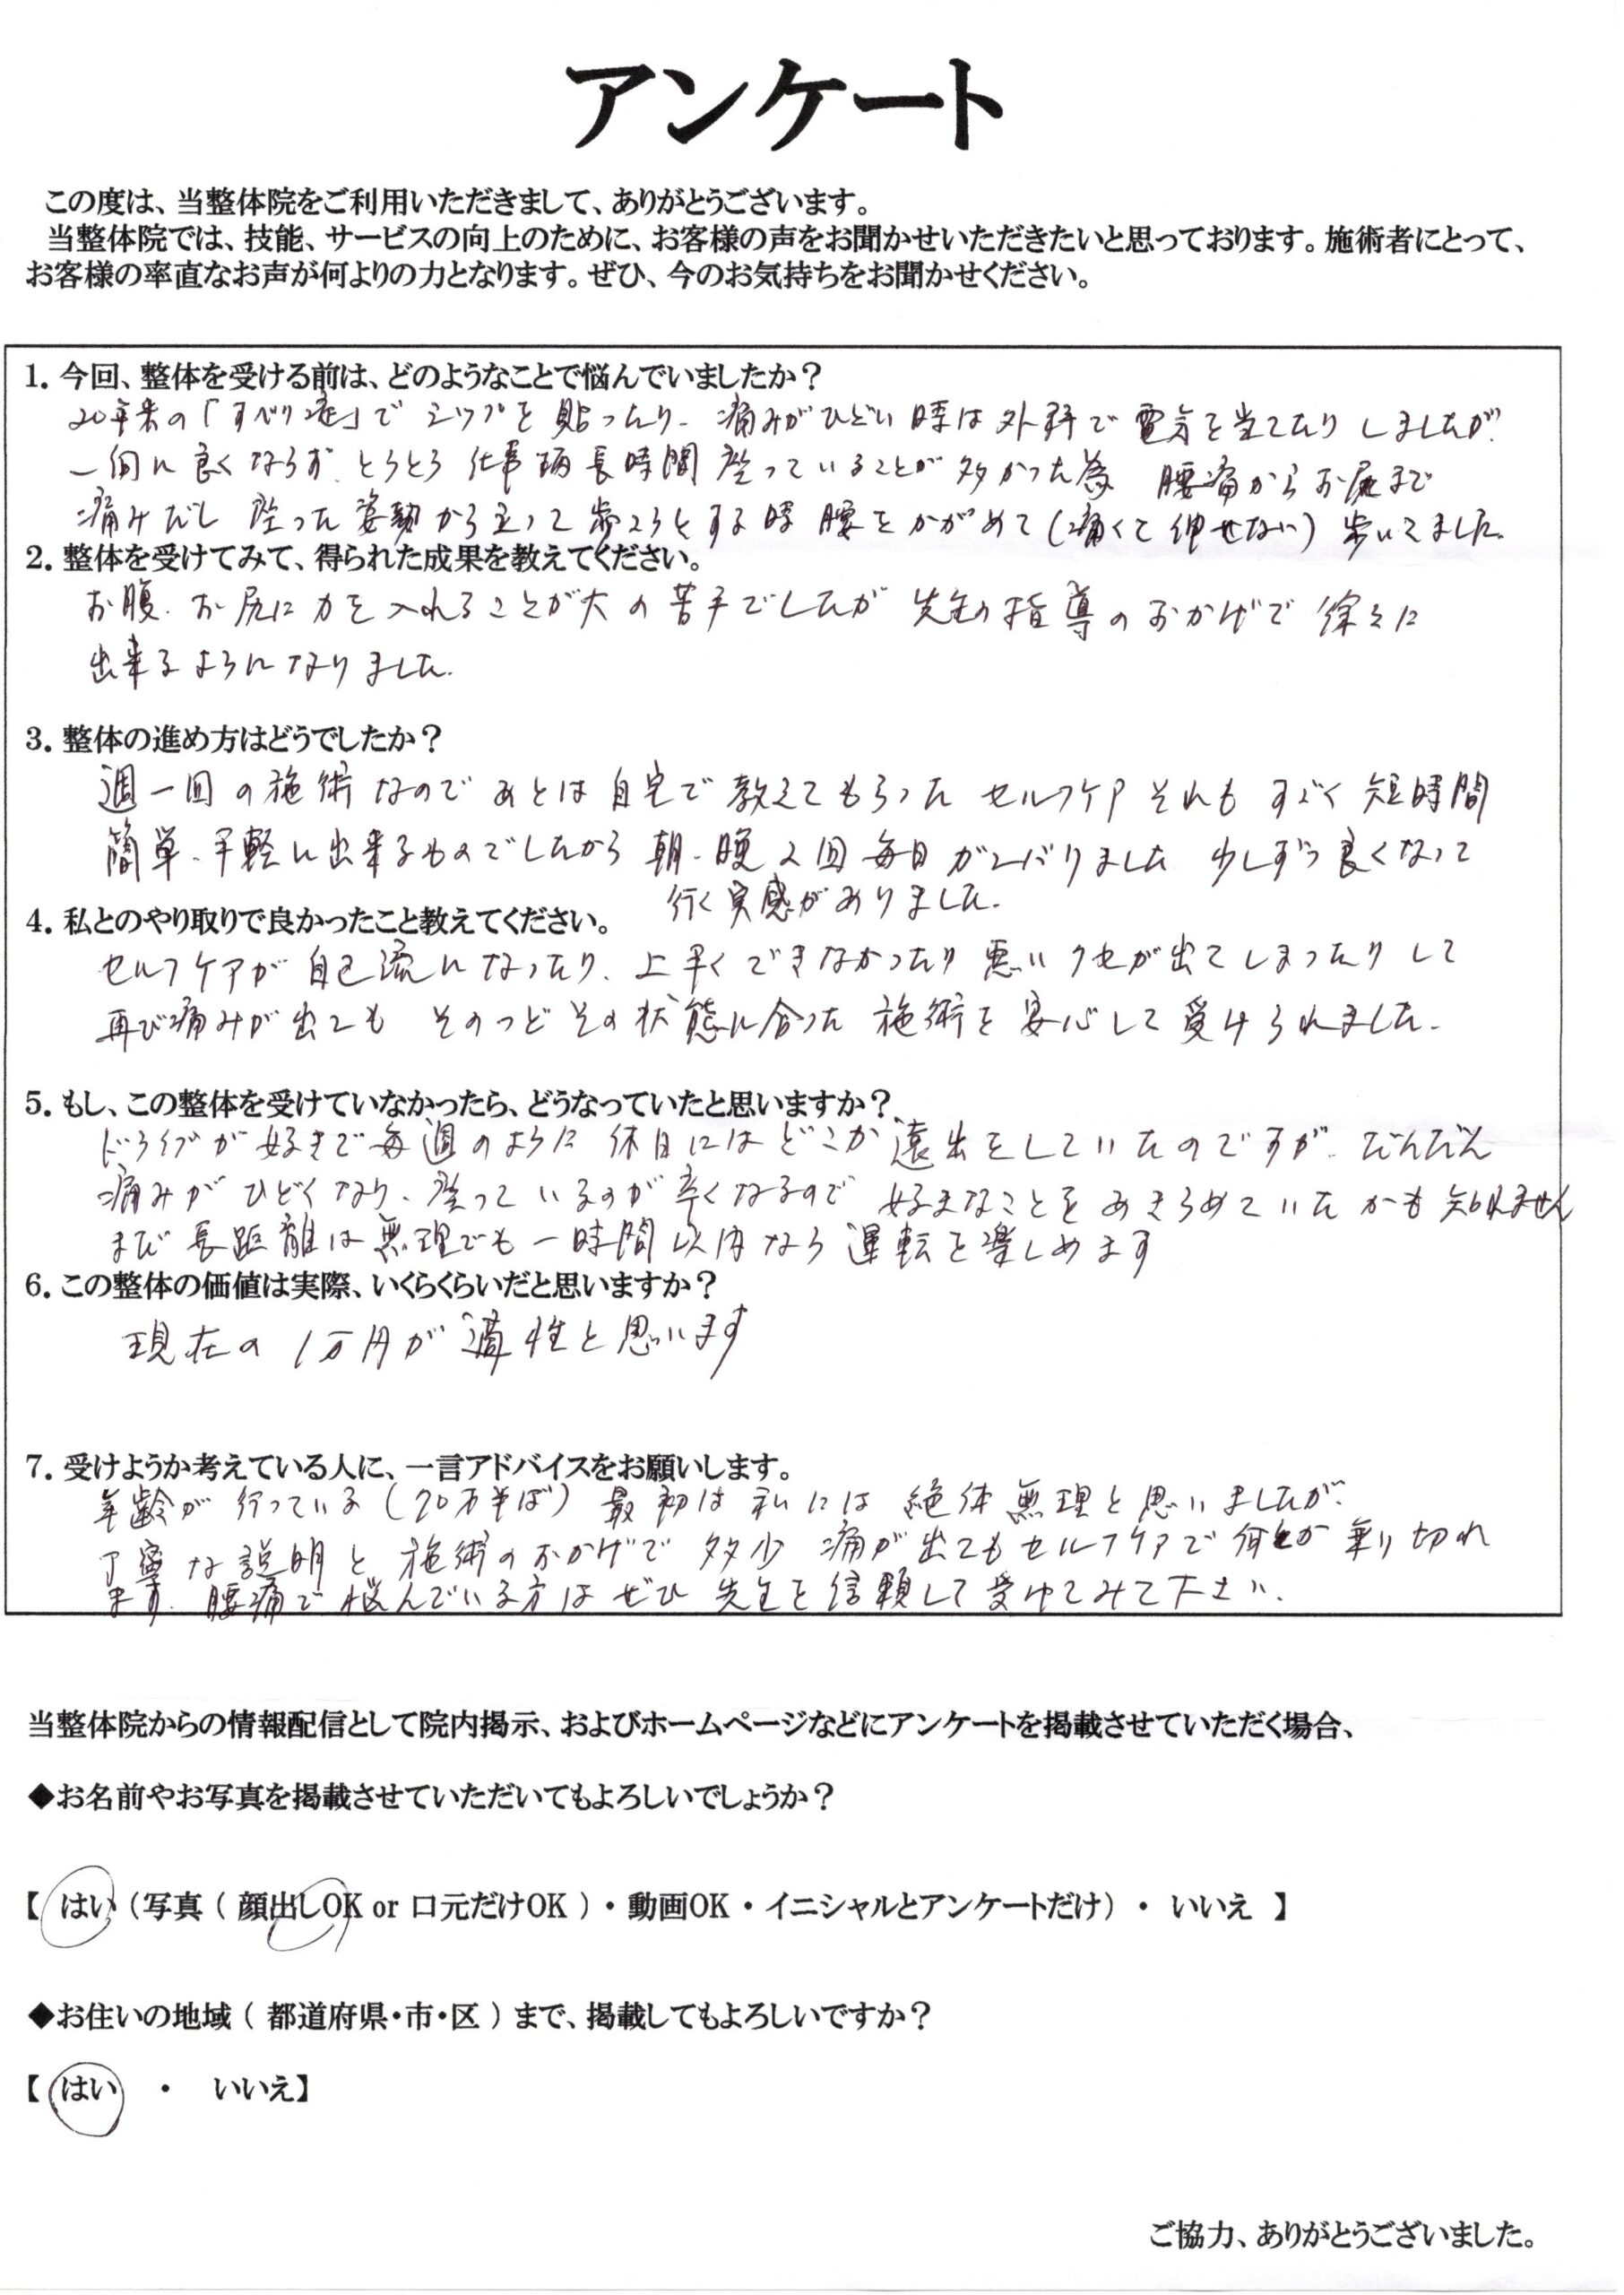 アンケート
この度は、当整体院をご利用いただきまして、ありがとうございます。
当整体院では、技能、サービスの向上のために、お客様の声をお聞かせいただきたいと思っております。施術者にとって、
お客様の率直なお声が何よりの力となります。ぜひ、今のお気持ちをお聞かせください。
1. 今回、整体を受ける前は、どのようなことで悩んでいましたか？
20年来の「すべり症」でシップを貼ったり、痛みがひどい時は外科で電気を当てたりしましたが
一向に良くならず、とうとう仕事柄長時間座っていることが多かった為 腰痛からお尻まで
痛みだし 座った姿勢から立って歩こうとする時 腰をかがめて(痛くて伸せない) 歩いてました。
2. 整体を受けてみて、得られた成果を教えてください。
お腹、お尻に力を入れることが大の苦手でしたが 先生の指導のおかげで 徐々に
出来るようになりました。
3. 整体の進め方はどうでしたか？
週一回の施術なのであとは自宅で教えてもらったセルフケア それも すごく短時間
簡単、手軽に出来るものでしたから 朝・晩2回毎日ガンバりました 少しずつ良くなって
行く実感がありました。
4. 私とのやり取りで良かったこと教えてください。
セルフケアが自己流になったり、上手くできなかったり悪いクセが出てしまったりして
再び痛みが出ても そのつどその状態に合った施術を安心して受けられました。
5. もし、この整体を受けていなかったら、どうなっていたと思いますか？
ドライブが好きで毎週のように休日にはどこか遠出をしていたのですが、だんだん
痛みがひどくなり、座っているのが辛くなるので 好きなことをあきらめていたかも知れません
まだ長距離は無理でも一時間以内なら運転を楽しめます
6. この整体の価値は実際、いくらくらいだと思いますか？
現在の1万円が適性と思います
7. 受けようか考えている人に、一言アドバイスをお願いします。
年齢が行っている(70才半ば) 最初は私には絶体無理と思いましたが、
丁寧な説明と施術のおかげで 多少痛が出てもセルフケアで何とか乗り切れ
ます。腰痛で悩んでいる方はぜひ先生を信頼して受けてみて下さい。
当整体院からの情報配信として院内掲示、およびホームページなどにアンケートを掲載させていただく場合、
◆お名前やお写真を掲載させていただいてもよろしいでしょうか？
【 はい（写真（ 顔出しOK or 口元だけOK ）・動画OK ・イニシャルとアンケートだけ）・ いいえ 】
◆お住いの地域（ 都道府県・市・区 ）まで、掲載してもよろしいですか？
【 はい ・ いいえ】
ご協力、ありがとうございました。